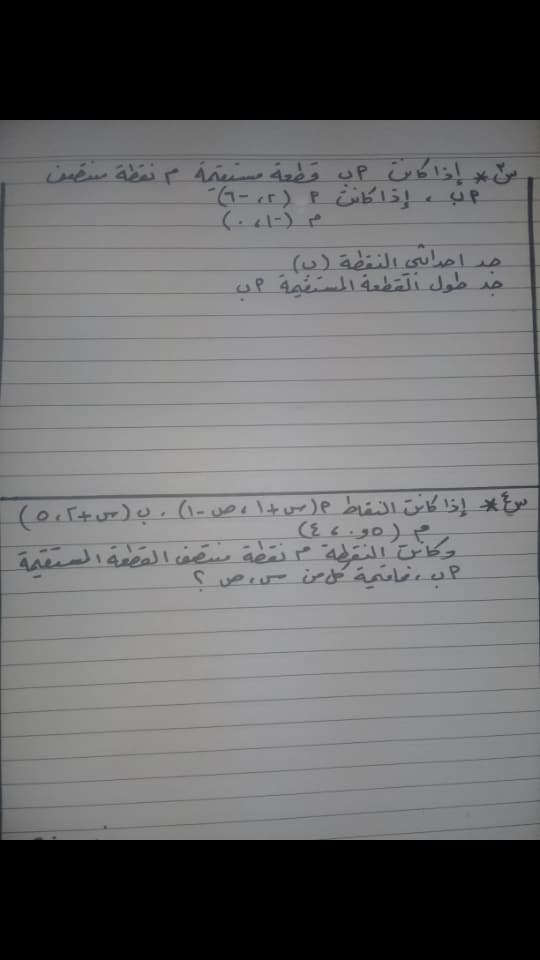 س٣* إذا كانت أب قطعة مستقيمة م نقطة منتصف
أب ، إذا كانت أ (٢، -٦)
م (-١، ٠)
جد احداثي النقطة (ب)
جد طول القطعة المستقيمة أب
س٤* إذا كانت النقاط أ(س+١، ص-١) ، ب(س+٢، ٥)
م (٠٫٥، ٤)
وكانت النقطة م نقطة منتصف القطعة المستقيمة
أب، فما قيمة كل من س، ص ؟